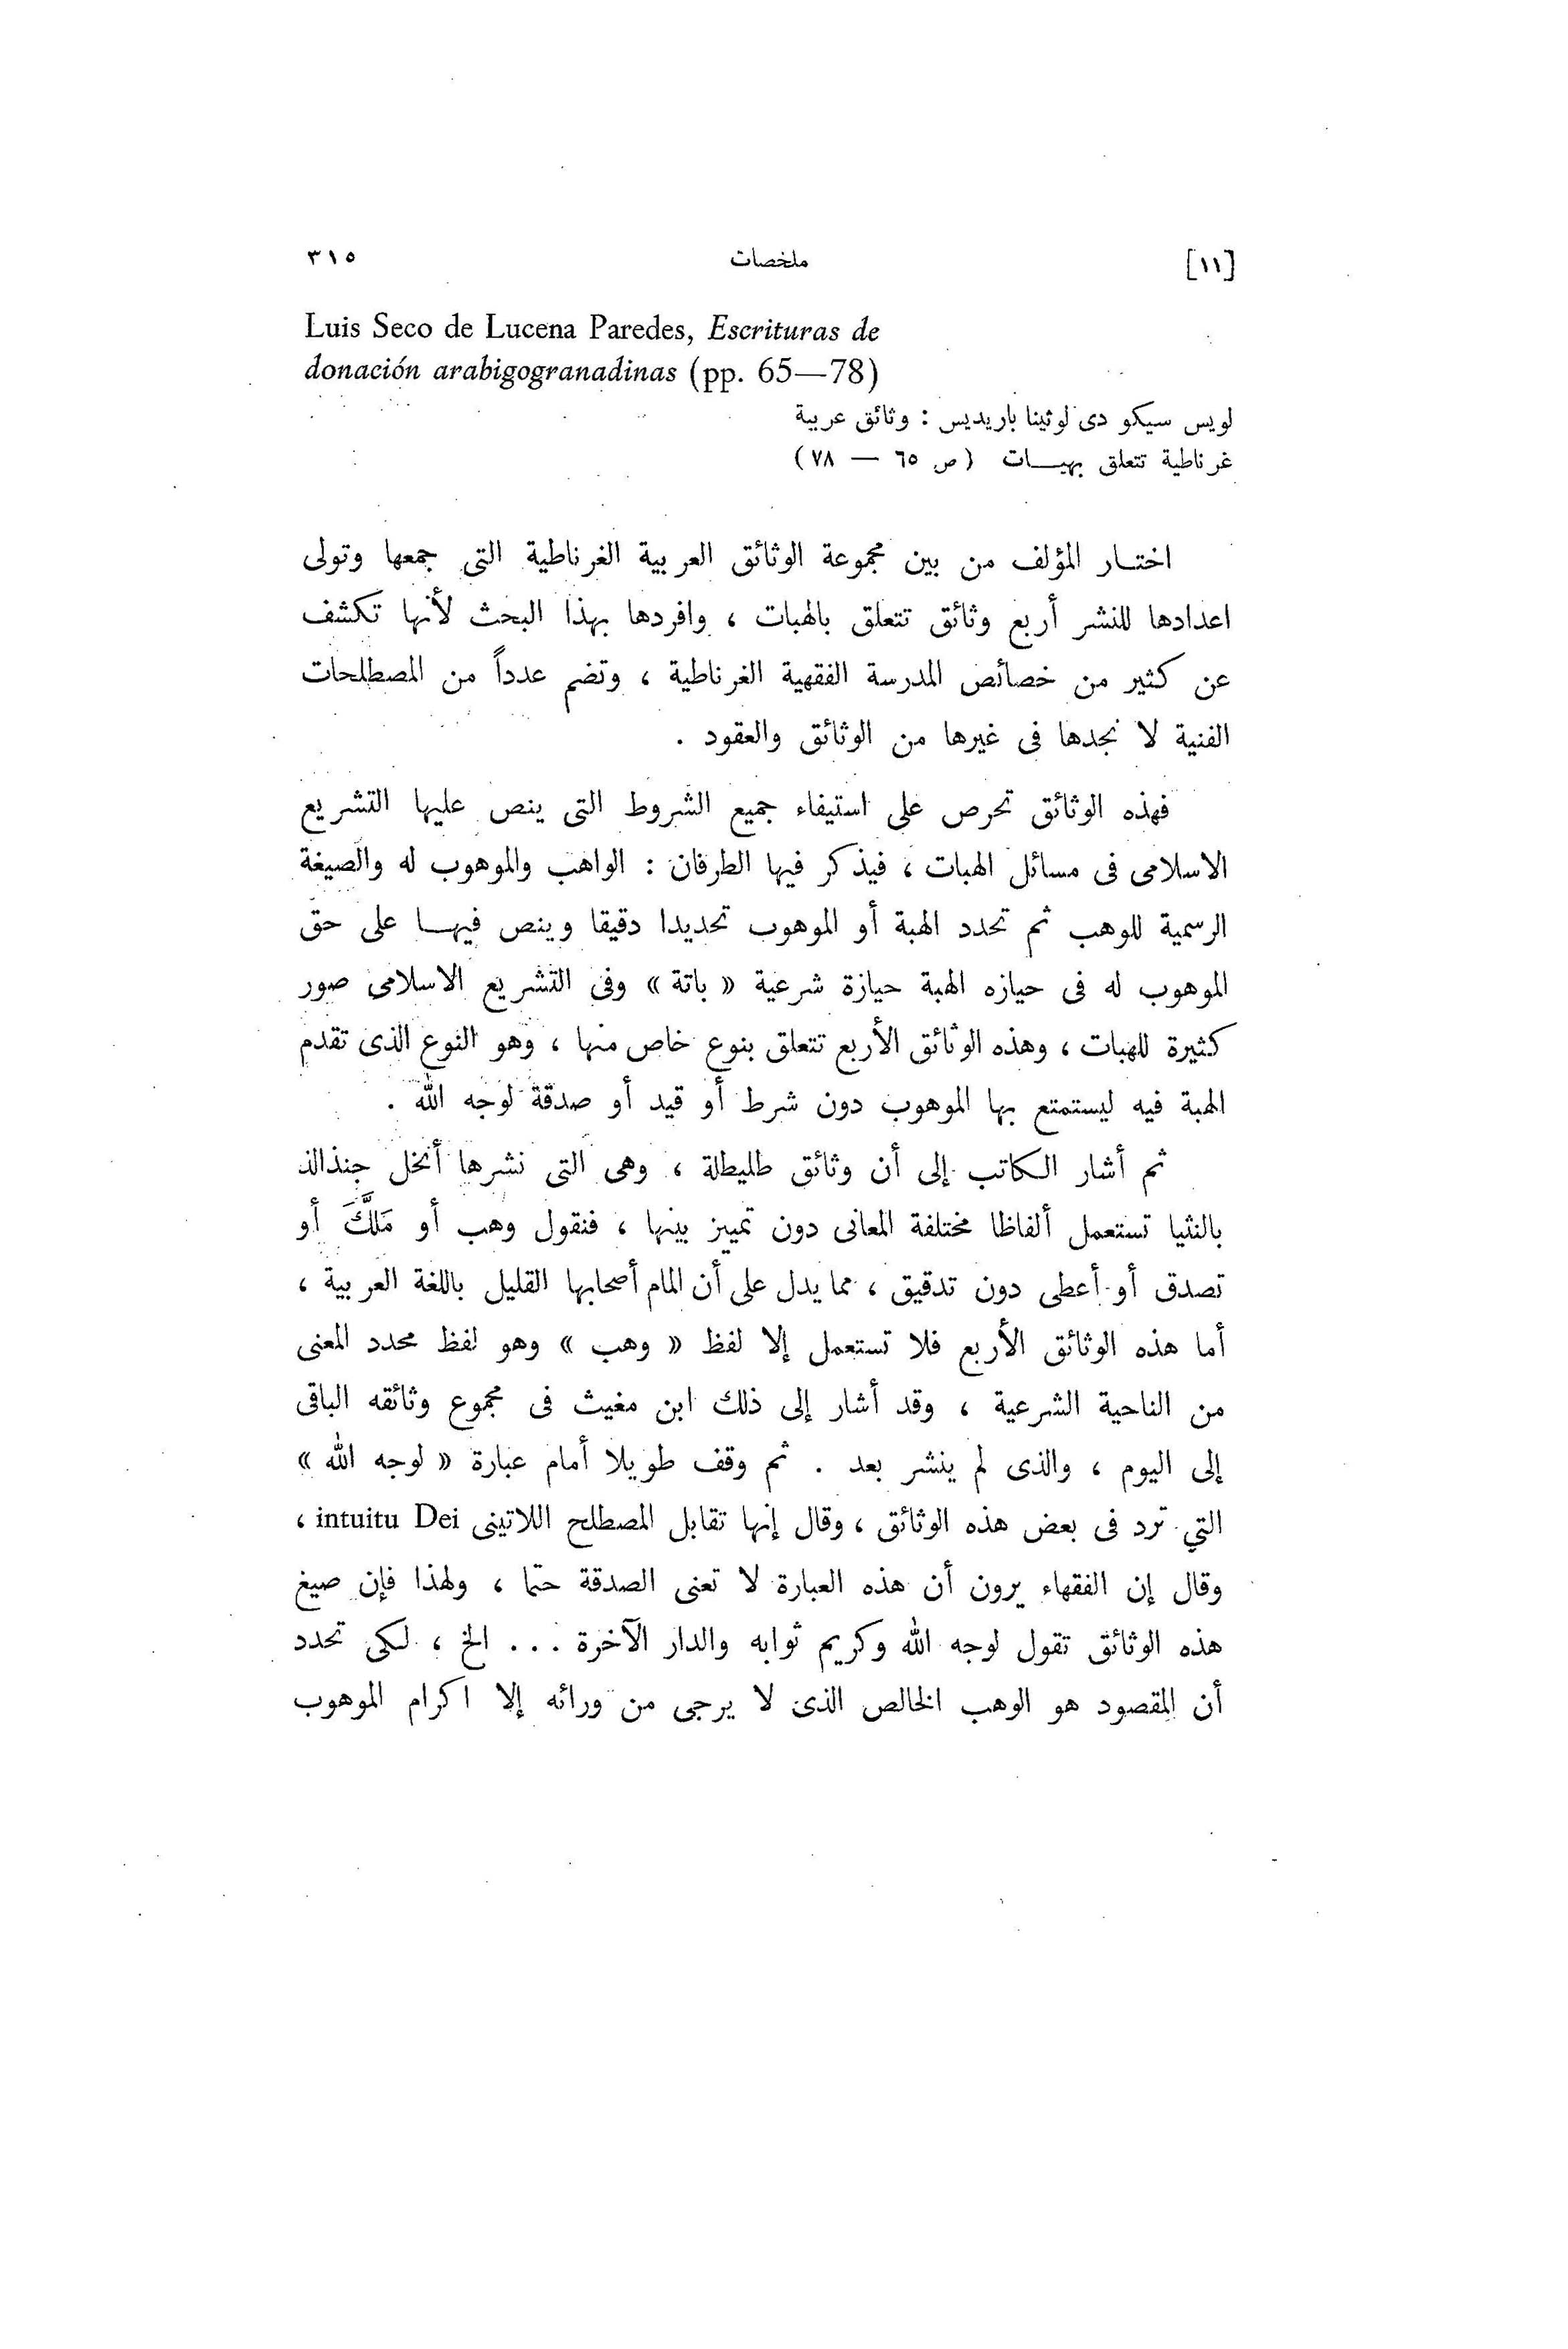 [١١] ملخصات ٣١٥
Luis Seco de Lucena Paredes, Escrituras de
donación arabigogranadinas (pp. 65—78)
لويس سيكو دى لوثينا باريديس : وثائق عربية
غرناطية تتعلق بهبــات ( ص ٦٥ — ٧٨ )
اختـار المؤلف من بين مجموعة الوثائق العربية الغرناطية التى جمعها وتولى
اعدادها للنشر أربع وثائق تتعلق بالهبات ، وافردها بهذا البحث لأنها تكشف
عن كثير من خصائص المدرسة الفقهية الغرناطية ، وتضم عدداً من المصطلحات
الفنية لا نجدها فى غيرها من الوثائق والعقود .
فهذه الوثائق تحرص على استيفاء جميع الشروط التى ينص عليها التشريع
الاسلامى فى مسائل الهبات ، فيذكر فيها الطرفان : الواهب والموهوب له والصيغة
الرسمية للوهب ثم تحدد الهبة أو الموهوب تحديدا دقيقا وينص فيهــا على حق
الموهوب له فى حيازه الهبة حيازة شرعية « باتة » وفى التشريع الاسلامى صور
كثيرة للهبات ، وهذه الوثائق الأربع تتعلق بنوع خاص منها ، وهو النوع الذى تقدم
الهبة فيه ليستمتع بها الموهوب دون شرط أو قيد أو صدقة لوجه الله .
ثم أشار الكاتب إلى أن وثائق طليطلة ، وهى التى نشرها أنخل جنذالذ
بالنثيا تستعمل ألفاظا مختلفة المعانى دون تمييز بينها ، فنقول وهب أو مَلَّكَ أو
تصدق أو أعطى دون تدقيق ، مما يدل على أن المام أصحابها القليل باللغة العربية ،
أما هذه الوثائق الأربع فلا تستعمل إلا لفظ « وهب » وهو لفظ محدد المعنى
من الناحية الشرعية ، وقد أشار إلى ذلك ابن مغيث فى مجموع وثائقه الباقى
إلى اليوم ، والذى لم ينشر بعد . ثم وقف طويلا أمام عبارة « لوجه الله »
التي ترد فى بعض هذه الوثائق ، وقال إنها تقابل المصطلح اللاتينى intuitu Dei ،
وقال إن الفقهاء يرون أن هذه العبارة لا تعنى الصدقة حتما ، ولهذا فإن صيغ
هذه الوثائق تقول لوجه الله وكريم ثوابه والدار الآخرة ... الخ ، لكى تحدد
أن المقصود هو الوهب الخالص الذى لا يرجى من ورائه إلا اكرام الموهوب